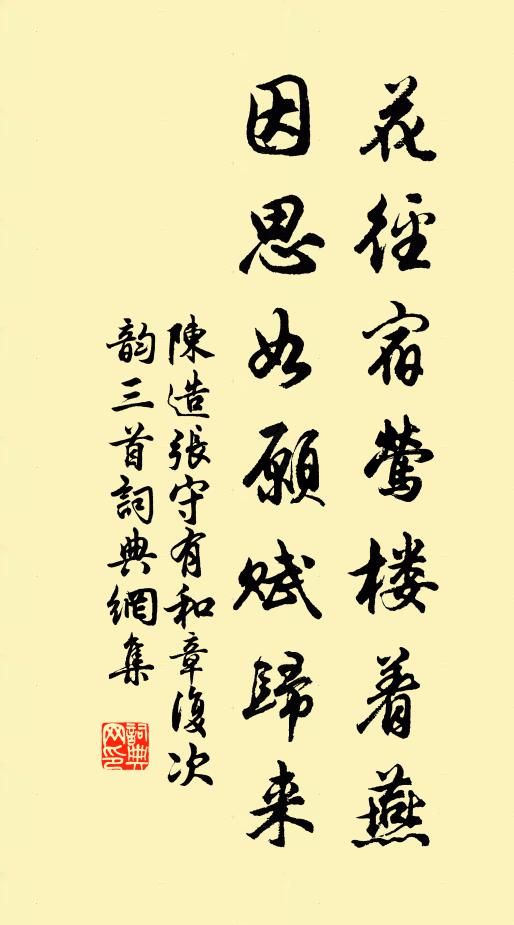 花径宿莺楼着燕
因思如願赋歸来
陳造張守有和章復次
韵三首詞典網集
詞典网印